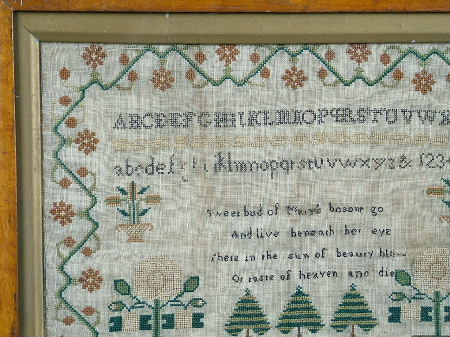 ABCDEFGHIJKLMNOPQRSTUVWX
abcdef klmnopqrstuvwxyz& 1234
Sweet bud of bosom go
And live beneath her eye
There in the sun of beauty
Or taste of heaven and die